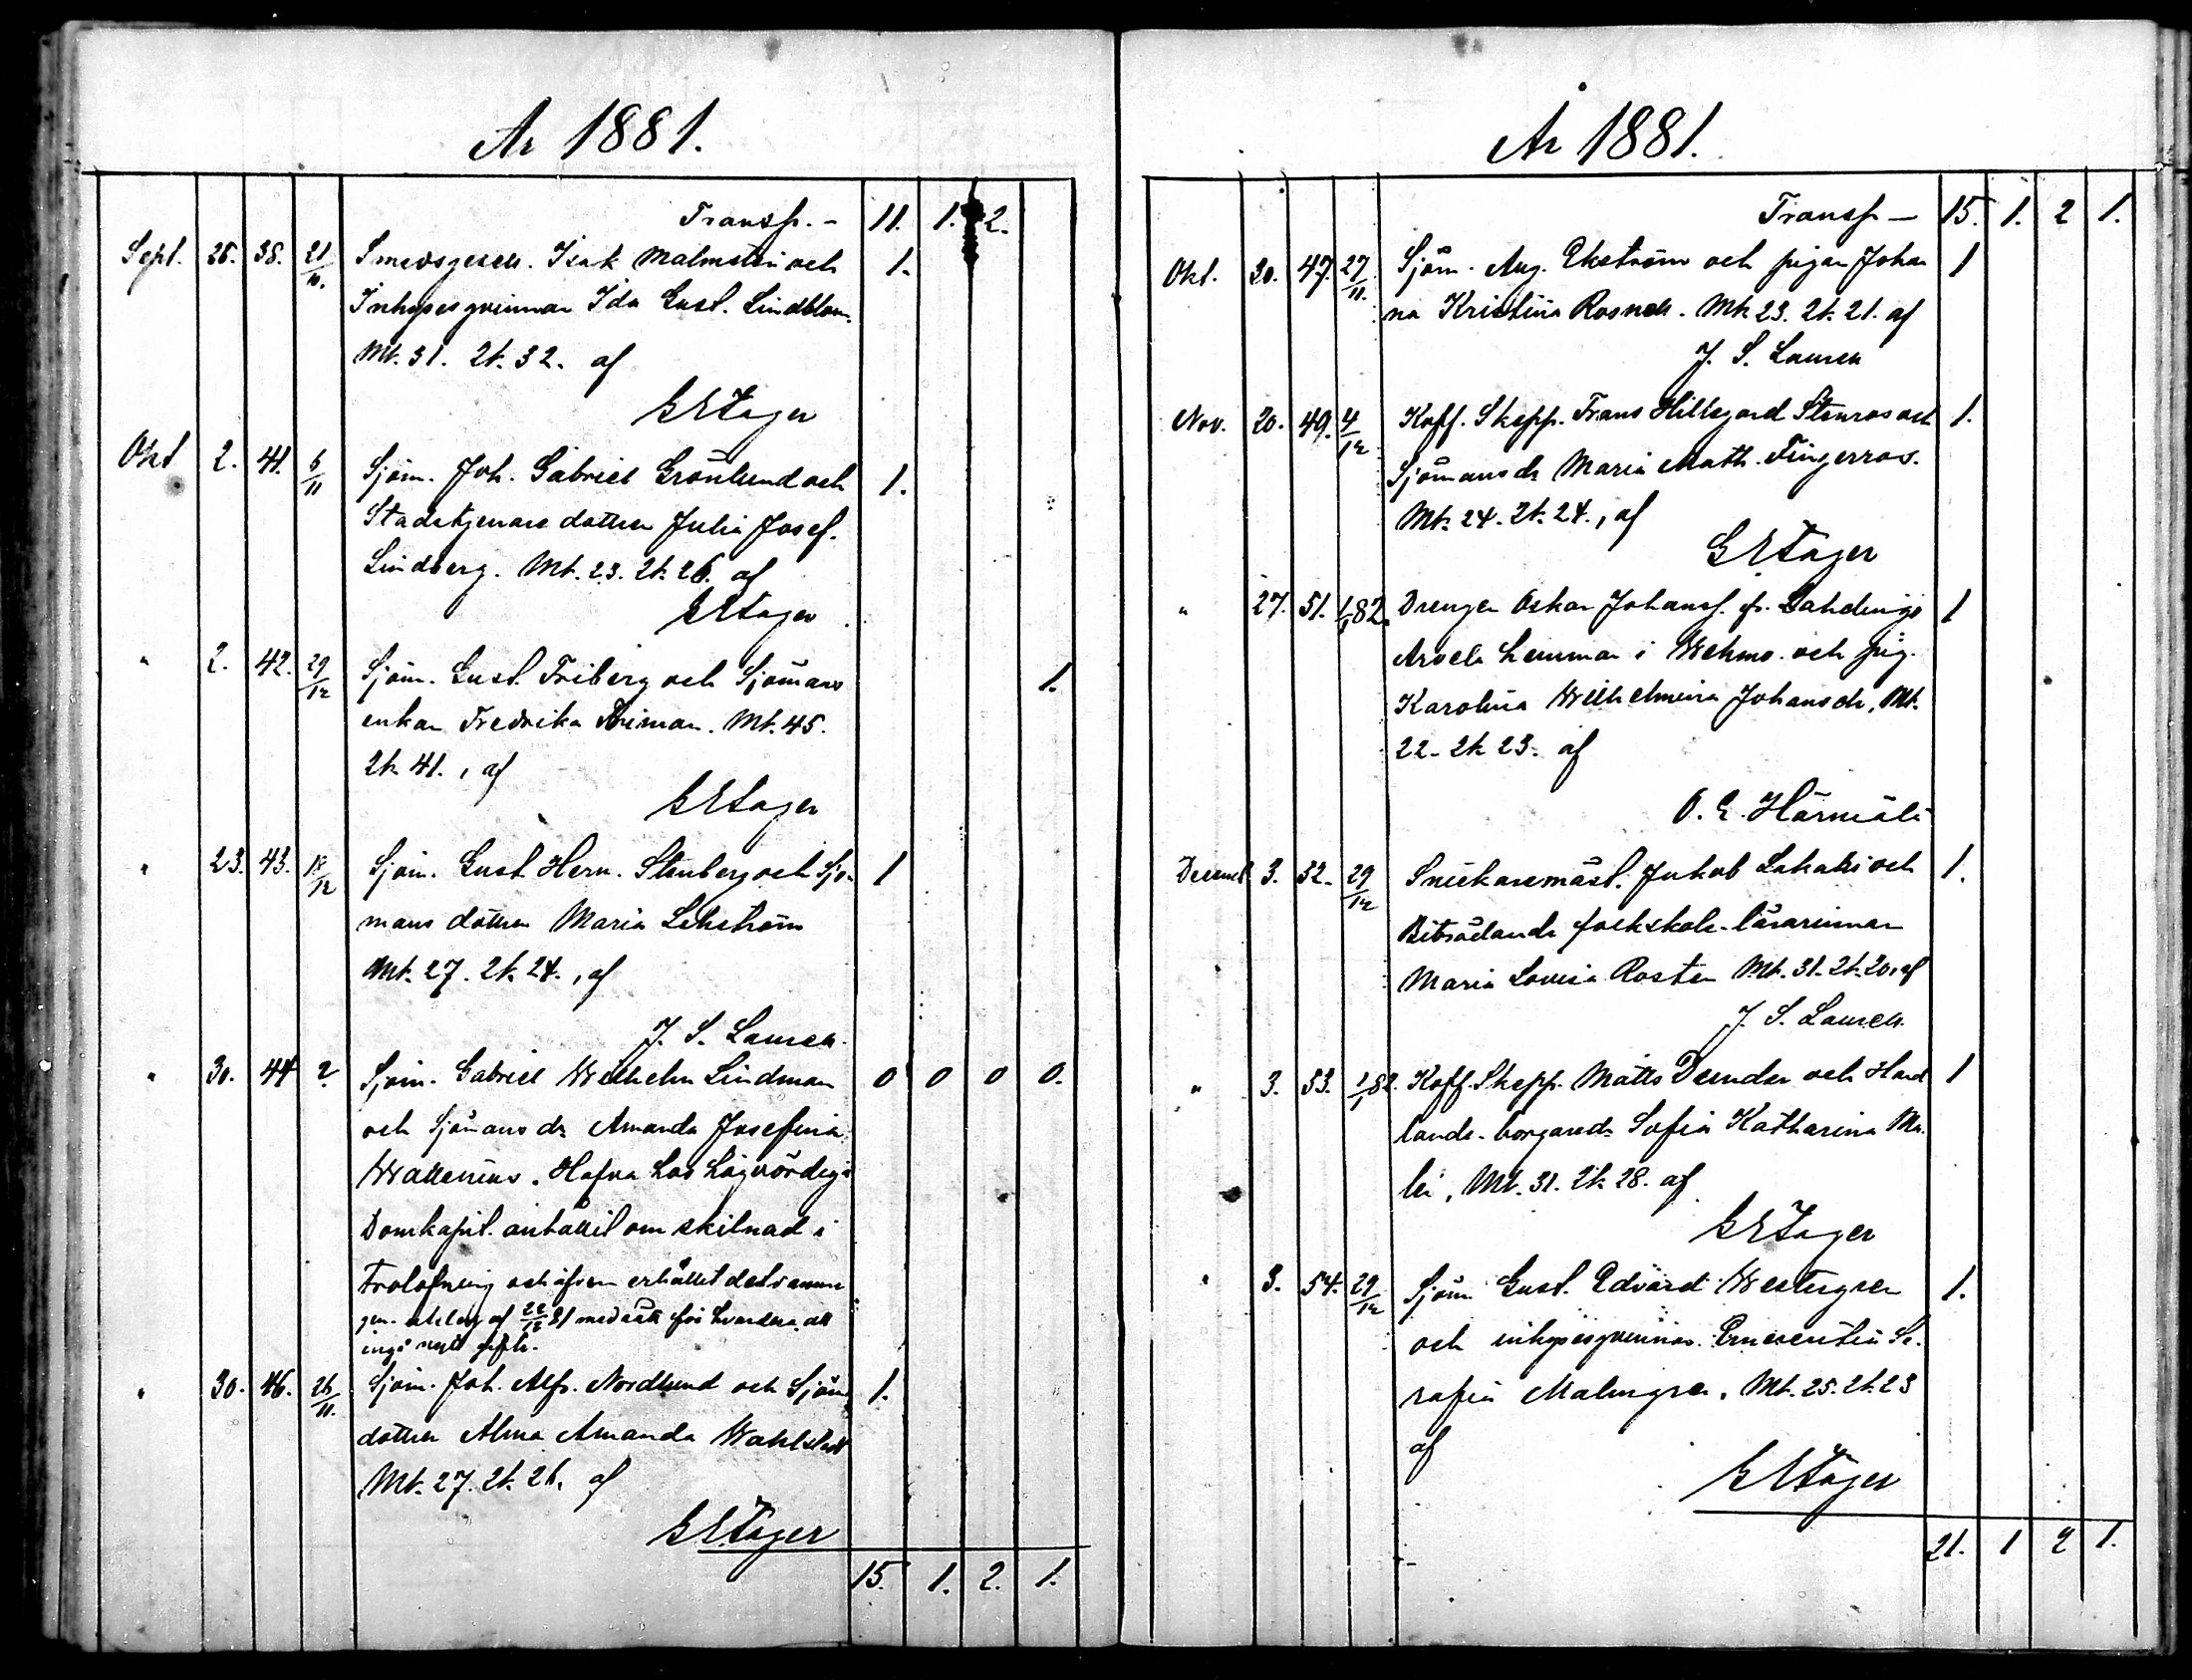 År 1881.
Transp. - 11. 1. 2.
Sept. 25. 38. 21/10. Smedsgesell. Isak Malmsten och 1.
Inhyses qvinnan Ida Gust. Lindblom.
Mk. 31. Qk. 32. af
G E Eager
Okt 2. 41. 6/11 Sjöm. Joh. Gabriel Grönlund och 1.
Stadstjenare dottren Julia Josef.
Lindberg. Mk. 23. Qk. 26. af
G E Eager
" 2. 42. 29/12 Sjöm. Gust. Friberg och Sjömans 1.
enkan Fredrika Mk. 45.
Qk. 41., af
G E Eager
" 23. 43. 18/12 Sjöm. Gust. Herm. Stenberg och Sjö- 1
mans dottren Maria Lehström
Mk. 27. Qk. 24., af
J. S. Laurell.
" 30. 44 ? Sjöm. Gabriel Wilhelm Lindman 0 0 0 0.
och Sjömans dr Amanda Josefina
Wallenius. Hafva hos högvördiga
Domkapit. anhållit om skilnad i
Trolofning och äfven erhållit detsamma
gen. utslag af 22/12 81 med rätt för hvardera att
ingå nytt gifte.
" 30. 46. 26/11. Sjöm. Joh. Alfr. Nordlund och Sjöm. 1.
dottren Alma Amanda Wahlstedt
Mk. 27. Qk. 26. af
G E Eager
15. 1. 2. 1.
År 1881.
Transp - 15. 1. 2 1.
Okt. 30. 47. 27/11. Sjöm. Aug. Ekström och pigan Johan 1
na Kristina Rosnell. Mk 23. Qk. 21. af
J. S. Laurell
Nov. 20. 49. 4/12 Koff. Skepp. Frans Hillegard Stenros och 1.
Sjömans dr Maria Math. Fingerroos.
Mk. 24. Qk. 24., af
G E Eager
" 27. 51. 1/1 82. Drengen Oskar Johanss. fr. Lahdinga 1
Arvela hemman i Wehmo och pig.
Karolina Wilhelmina Johansdr, Mk.
22. Qk 23. af
O. E. Härmälä
Decemb 3. 52. 29/12 Snickaremäst. Jakob Lakaki och 1.
Biträdande folkskole-lärarinnan
Maria Lovisa Rosten Mk. 31. Qk. 20, af
J. S. Laurell.
" 3. 53. 1/1 82. Koff. Skepp. Matts och Hand 1
lande-borgaredr Sofia Katharina Ma-
lin, Mk. 31. Qk 28. af
G E Eager
" 3. 54. 29/12 Sjöm. Gust. Edvard Westergren 1.
och inhysesqvinnan Ernerentia Se-
rafia Malmgren, Mk. 25. Qk. 23
af
G E Eager
21. 1 2 1.